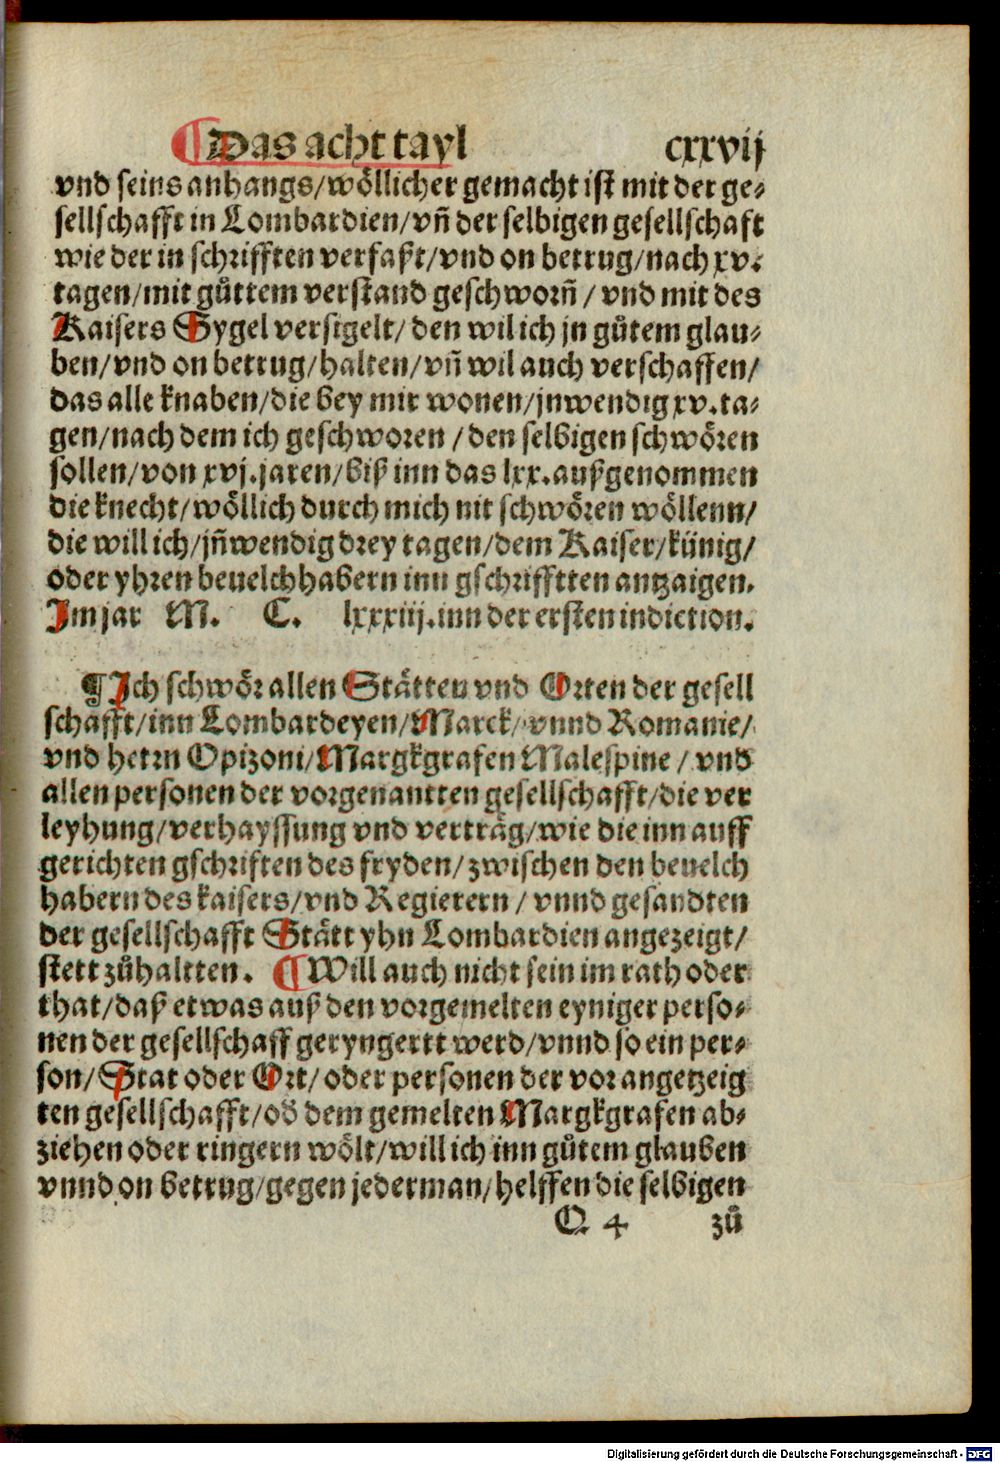 ¶Das acht tayl cxxvij
vnd seins anhangs/wöllicher gemacht ist mit der ge⸗
sellschafft in Lombardien/vñ der selbigen gesellschaft
wie der in schrifften verfaßt/vnd on betrug/nach xv.
tagen/mit gůttem verstand geschworñ / vnd mit des
Kaisers Sygel versigelt/ den wil ich jn gůtem glau⸗
ben/vnd on betrug/halten/vñ wil auch verschaffen/
das alle knaben/die bey mir wonen/jnwendig xv.ta⸗
gen/nach dem ich geschworen /den selbigen schwören
sollen/von xvj.jaren/biß inn das lxx.außgenommen
die knecht/wöllich durch mich nit schwören wöllenn/
die will ich/jñwendig drey tagen/dem Kaiser/künig/
oder yhren beuelchhabern inn gschrifftten antzaigen.
Im jar M. C. lxxxiij.inn der ersten indiction.
¶Ich schwör allen Stätten vnd Orten der gesell
schafft/inn Lombardeyen/Marck/vnnd Romanie/
vnd herrn Opizoni/Margkgrafen Malespine / vnd
allen personen der vorgenantten gesellschafft/die ver
leyhung/verhayssung vnd verträg/wie die inn auff
gerichten gschriften des fryden/zwischen den beuelch
habern des kaisers/vnd Regierern / vnnd gesandten
der gesellschafft Stätt yhn Lombardien angezeigt/
stett zůhaltten. ¶Will auch nicht sein im rath oder
that/daß etwas auß den vorgemelten eyniger perso⸗
nen der gesellschaff geryngertt werd/vnnd so ein per⸗
son/Stat oder Ort/oder personen der vor angetzeig
ten gesellschafft/ob dem gemelten Margkgrafen ab⸗
ziehen oder ringern wölt/will ich inn gůtem glauben
vnnd on betrug/gegen jederman/helffen die selbigen
Q 4 zů
Digitalisierung gefördert durch die Deutsche Forschungsgemeinschaft - DFG